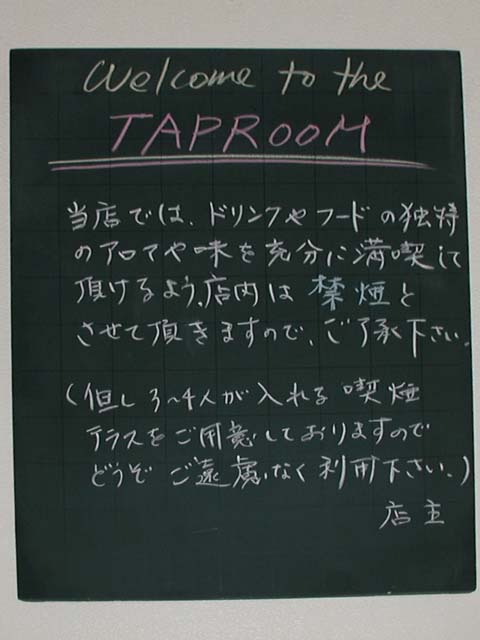 Welcome to the
TAPROOM
当店では、ドリンクやフードの独特
のアロマや味を充分に満喫して
頂けるよう、店内は禁煙と
させて頂きますので、ご了承下さい。
(但し3~4人が入れる喫煙
テラスをご用意しておりますので
どうぞご遠慮なく利用下さい。)
店主